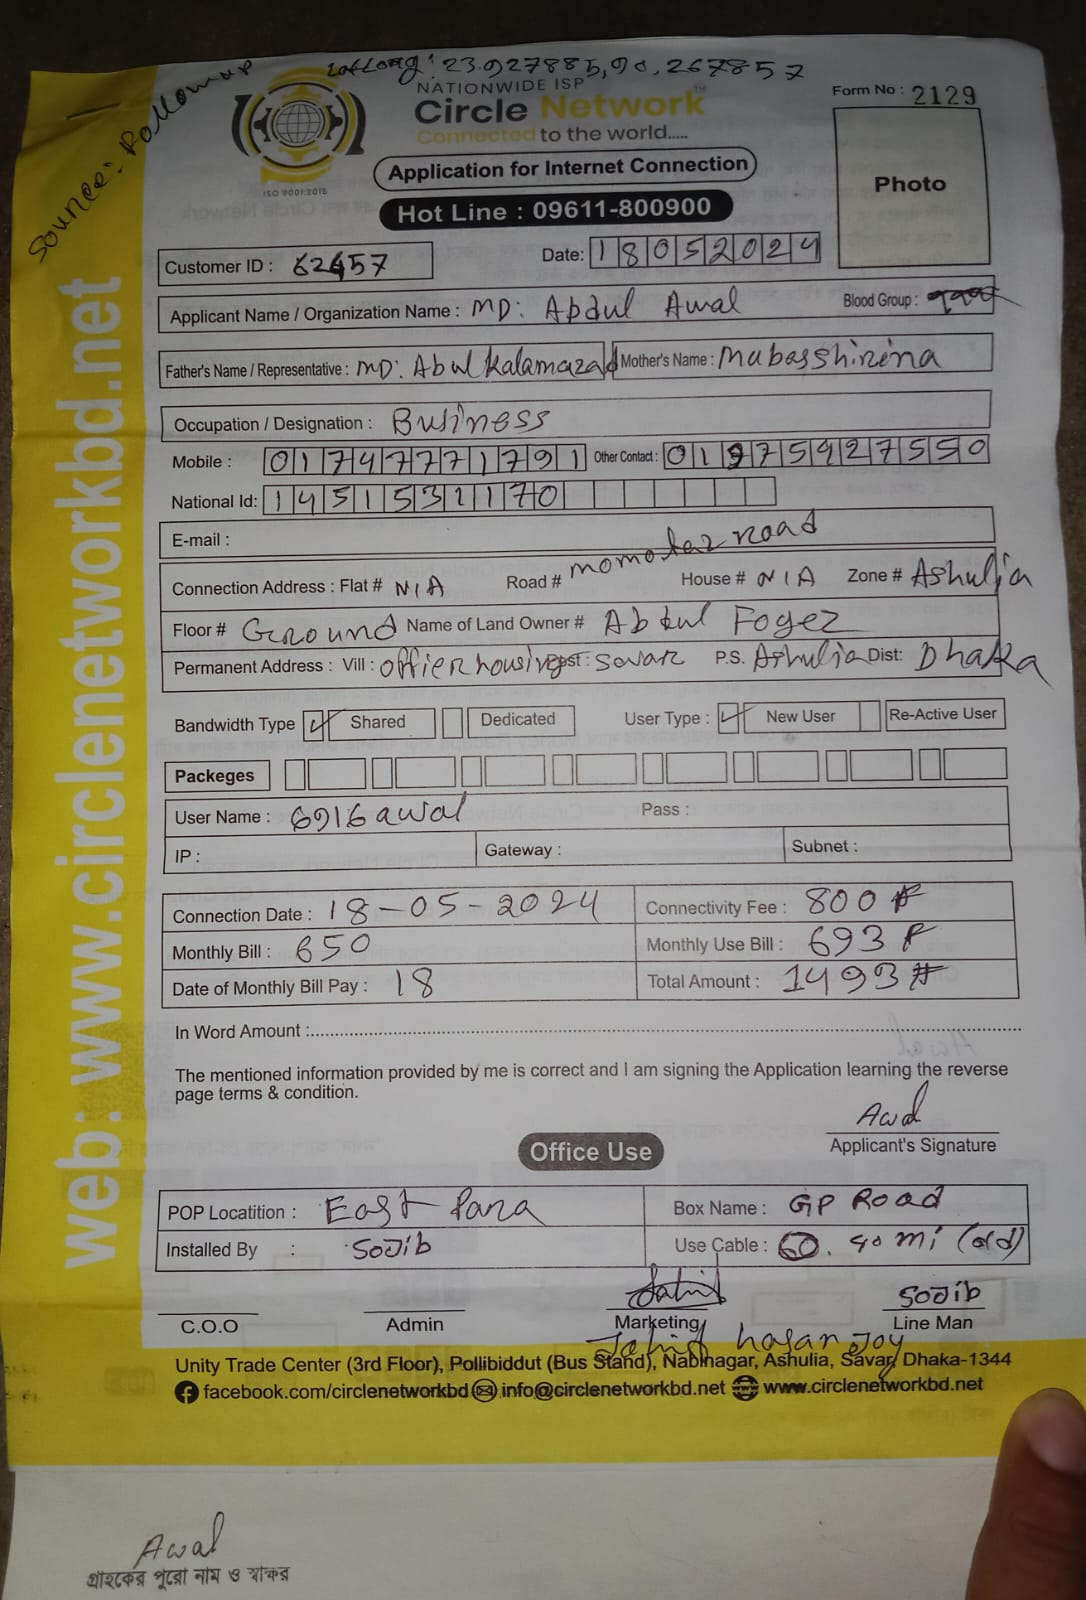 LatLong: 23.927885, 90.267857
Source: Followup
NATIONWIDE ISP
Circle Network™
Connected to the world.....
ISO 9001:2015
Form No : 2129
Application for Internet Connection
Hot Line : 09611-800900
Photo
Customer ID : 62457
Date: 18052024
Applicant Name / Organization Name : MD: Abdul Awal Blood Group :
Father's Name / Representative : MD: Abul kalamazad Mother's Name : Mubasshirina
Occupation / Designation : Business
Mobile : 01747771791 Other Contact : 01975927550
National Id: 1451531170
E-mail :
Connection Address : Flat # N/A Road # momotaz road House # N/A Zone # Ashulia
Floor # Ground Name of Land Owner # Abdul Foyez
Permanent Address : Vill : officer housing Post : Savar P.S. Ashulia Dist: Dhaka
Bandwidth Type ✓ Shared Dedicated User Type : ✓ New User Re-Active User
Packeges
User Name : 6916awal Pass :
IP : Gateway : Subnet :
Connection Date : 18-05-2024 Connectivity Fee : 800
Monthly Bill : 650 Monthly Use Bill : 693
Date of Monthly Bill Pay : 18 Total Amount : 1493
In Word Amount :
The mentioned information provided by me is correct and I am signing the Application learning the reverse
page terms & condition.
Awal
Applicant's Signature
Office Use
POP Locatition : East Para Box Name : GP Road
Installed By : Sojib Use Cable : 40 mi (old)
Jahid Sojib
C.O.O Admin Marketing Line Man
Jahid hasan Joy
Unity Trade Center (3rd Floor), Pollibiddut (Bus Stand), Nabinagar, Ashulia, Savar, Dhaka-1344
facebook.com/circlenetworkbd info@circlenetworkbd.net www.circlenetworkbd.net
web: www.circlenetworkbd.net
Awal
গ্রাহকের পুরো নাম ও স্বাক্ষর